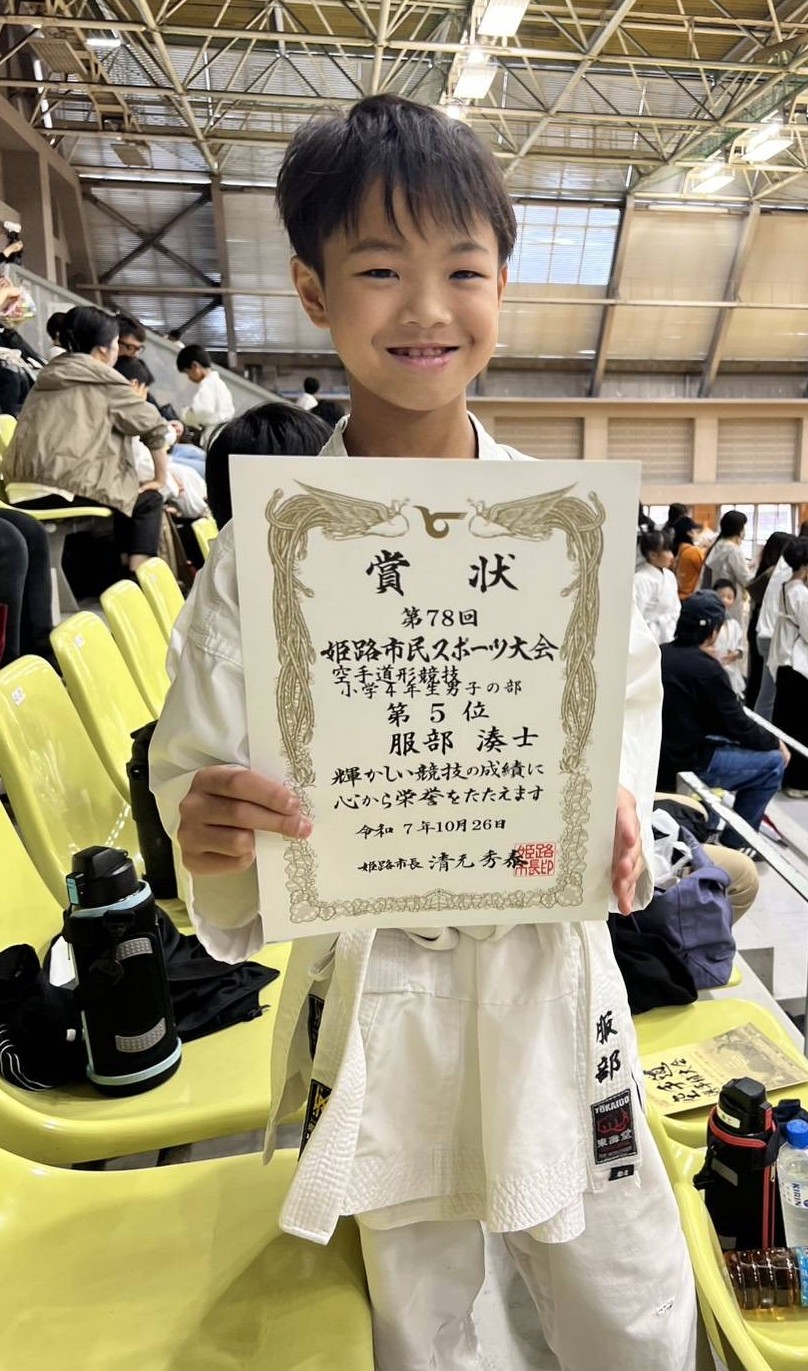 賞 状
第78回
姫路市民スポーツ大会
空手道形競技
小学4年生男子の部
第 5 位
服部 湊士
輝かしい競技の成績に
心から栄誉をたたえます
令和 7年10月26日
姫路市長 清元 秀泰
姫路
市長印
服部
TOKAIDO
東海堂
KIRIN